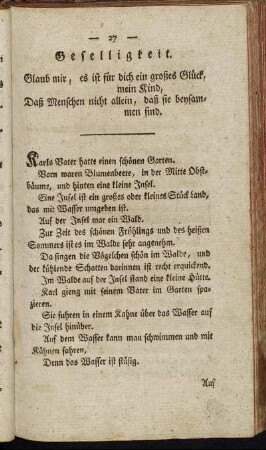 — 27 —
Geselligkeit.
Glaub mir, es ist für dich ein großes Glück,
mein Kind,
Daß Menschen nicht allein, daß sie beysam-
men sind.
Karls Vater hatte einen schönen Garten.
Vorn waren Blumenbeete, in der Mitte Obst-
bäume, und hinten eine kleine Insel.
Eine Insel ist ein großes oder kleines Stück Land,
das mit Wasser umgeben ist.
Auf der Insel war ein Wald.
Zur Zeit des schönen Frühlings und des heißen
Sommers ist es im Walde sehr angenehm.
Da singen die Vögelchen schön im Walde, und
der kühlende Schatten darinnen ist recht erquickend.
Im Walde auf der Insel stand eine kleine Hütte.
Karl gieng mit seinem Vater im Garten spa-
zieren.
Sie fuhren in einem Kahne über das Wasser auf
die Insel hinüber.
Auf dem Wasser kann man schwimmen und mit
Kähnen fahren,
Denn das Wasser ist flüßig.
Auf